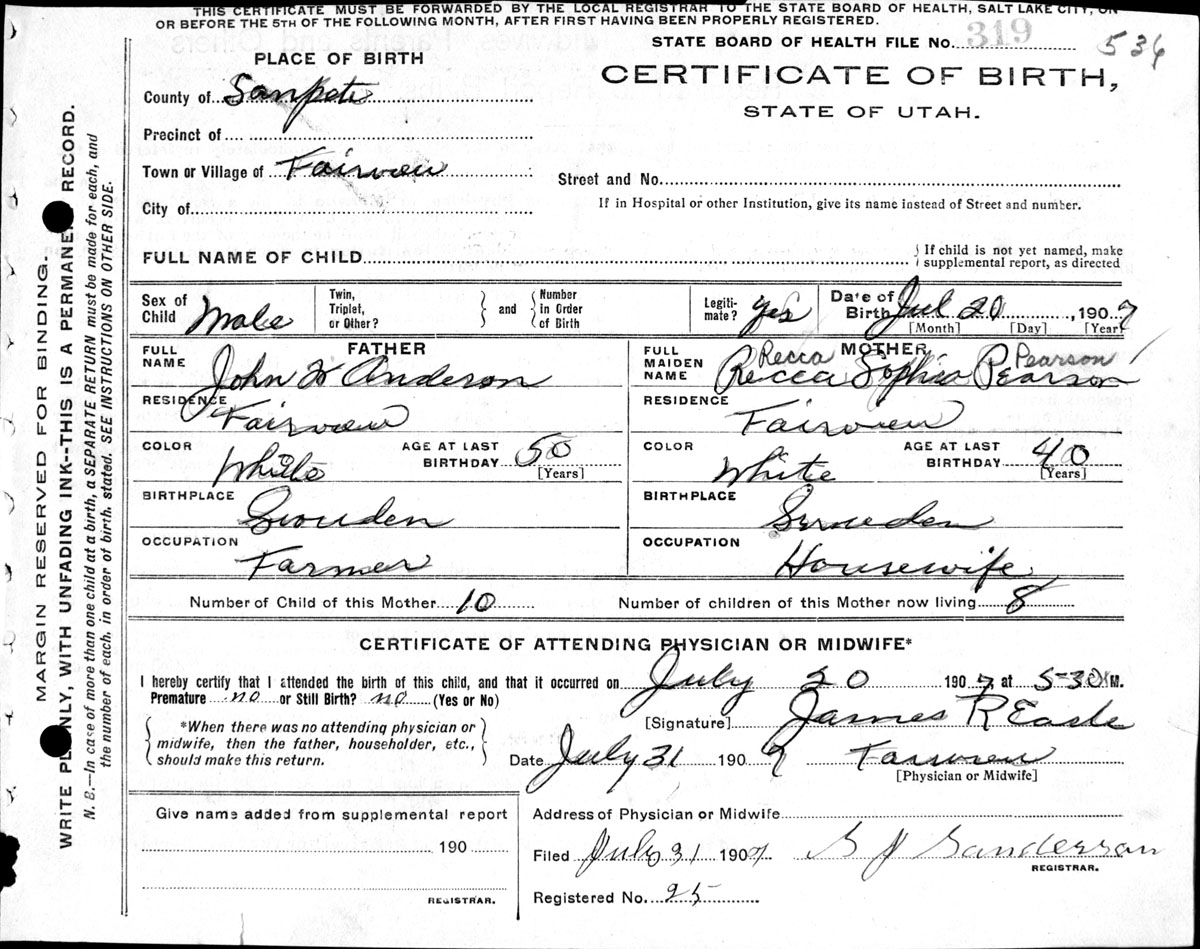 THIS CERTIFICATE MUST BE FORWARDED BY THE LOCAL REGISTRAR TO THE STATE BOARD OF HEALTH, SALT LAKE CITY, ON
OR BEFORE THE 5TH OF THE FOLLOWING MONTH, AFTER FIRST HAVING BEEN PROPERLY REGISTERED.
STATE BOARD OF HEALTH FILE No. 319 536
PLACE OF BIRTH
CERTIFICATE OF BIRTH,
STATE OF UTAH.
County of Sanpete
Precinct of
Town or Village of Fairview
Street and No.
City of
If in Hospital or other Institution, give its name instead of Street and number.
FULL NAME OF CHILD
If child is not yet named, make
supplemental report, as directed
Sex of Child Male
Twin, Triplet, or Other?
and
Number in Order of Birth
Legitimate? yes
Date of Birth Jul 20, 1907
[Month] [Day] [Year]
FATHER
FULL NAME John Anderson
RESIDENCE Fairview
COLOR White
AGE AT LAST BIRTHDAY 50
[Years]
BIRTHPLACE Swouden
OCCUPATION Farmer
MOTHER
FULL MAIDEN NAME Recca Sophia Pearson
Recca Pearson
RESIDENCE Fairview
COLOR White
AGE AT LAST BIRTHDAY 40
[Years]
BIRTHPLACE Sweden
OCCUPATION Housewife
Number of Child of this Mother 10
Number of children of this Mother now living 8
CERTIFICATE OF ATTENDING PHYSICIAN OR MIDWIFE*
I hereby certify that I attended the birth of this child, and that it occurred on July 20 1907, at 5-30 M.
Premature no or Still Birth? no (Yes or No)
*When there was no attending physician or
midwife, then the father, householder, etc.,
should make this return.
[Signature] James R
Date July 31 1907 Fairview
[Physician or Midwife]
Give name added from supplemental report
190
REGISTRAR.
Address of Physician or Midwife
Filed July 31 1907 Sanderson
REGISTRAR.
Registered No. 25
MARGIN RESERVED FOR BINDING.
WRITE PLAINLY, WITH UNFADING INK--THIS IS A PERMANENT RECORD.
N. B.—In case of more than one child at a birth, a SEPARATE RETURN must be made for each, and
the number of each, in order of birth, stated. SEE INSTRUCTIONS ON OTHER SIDE.